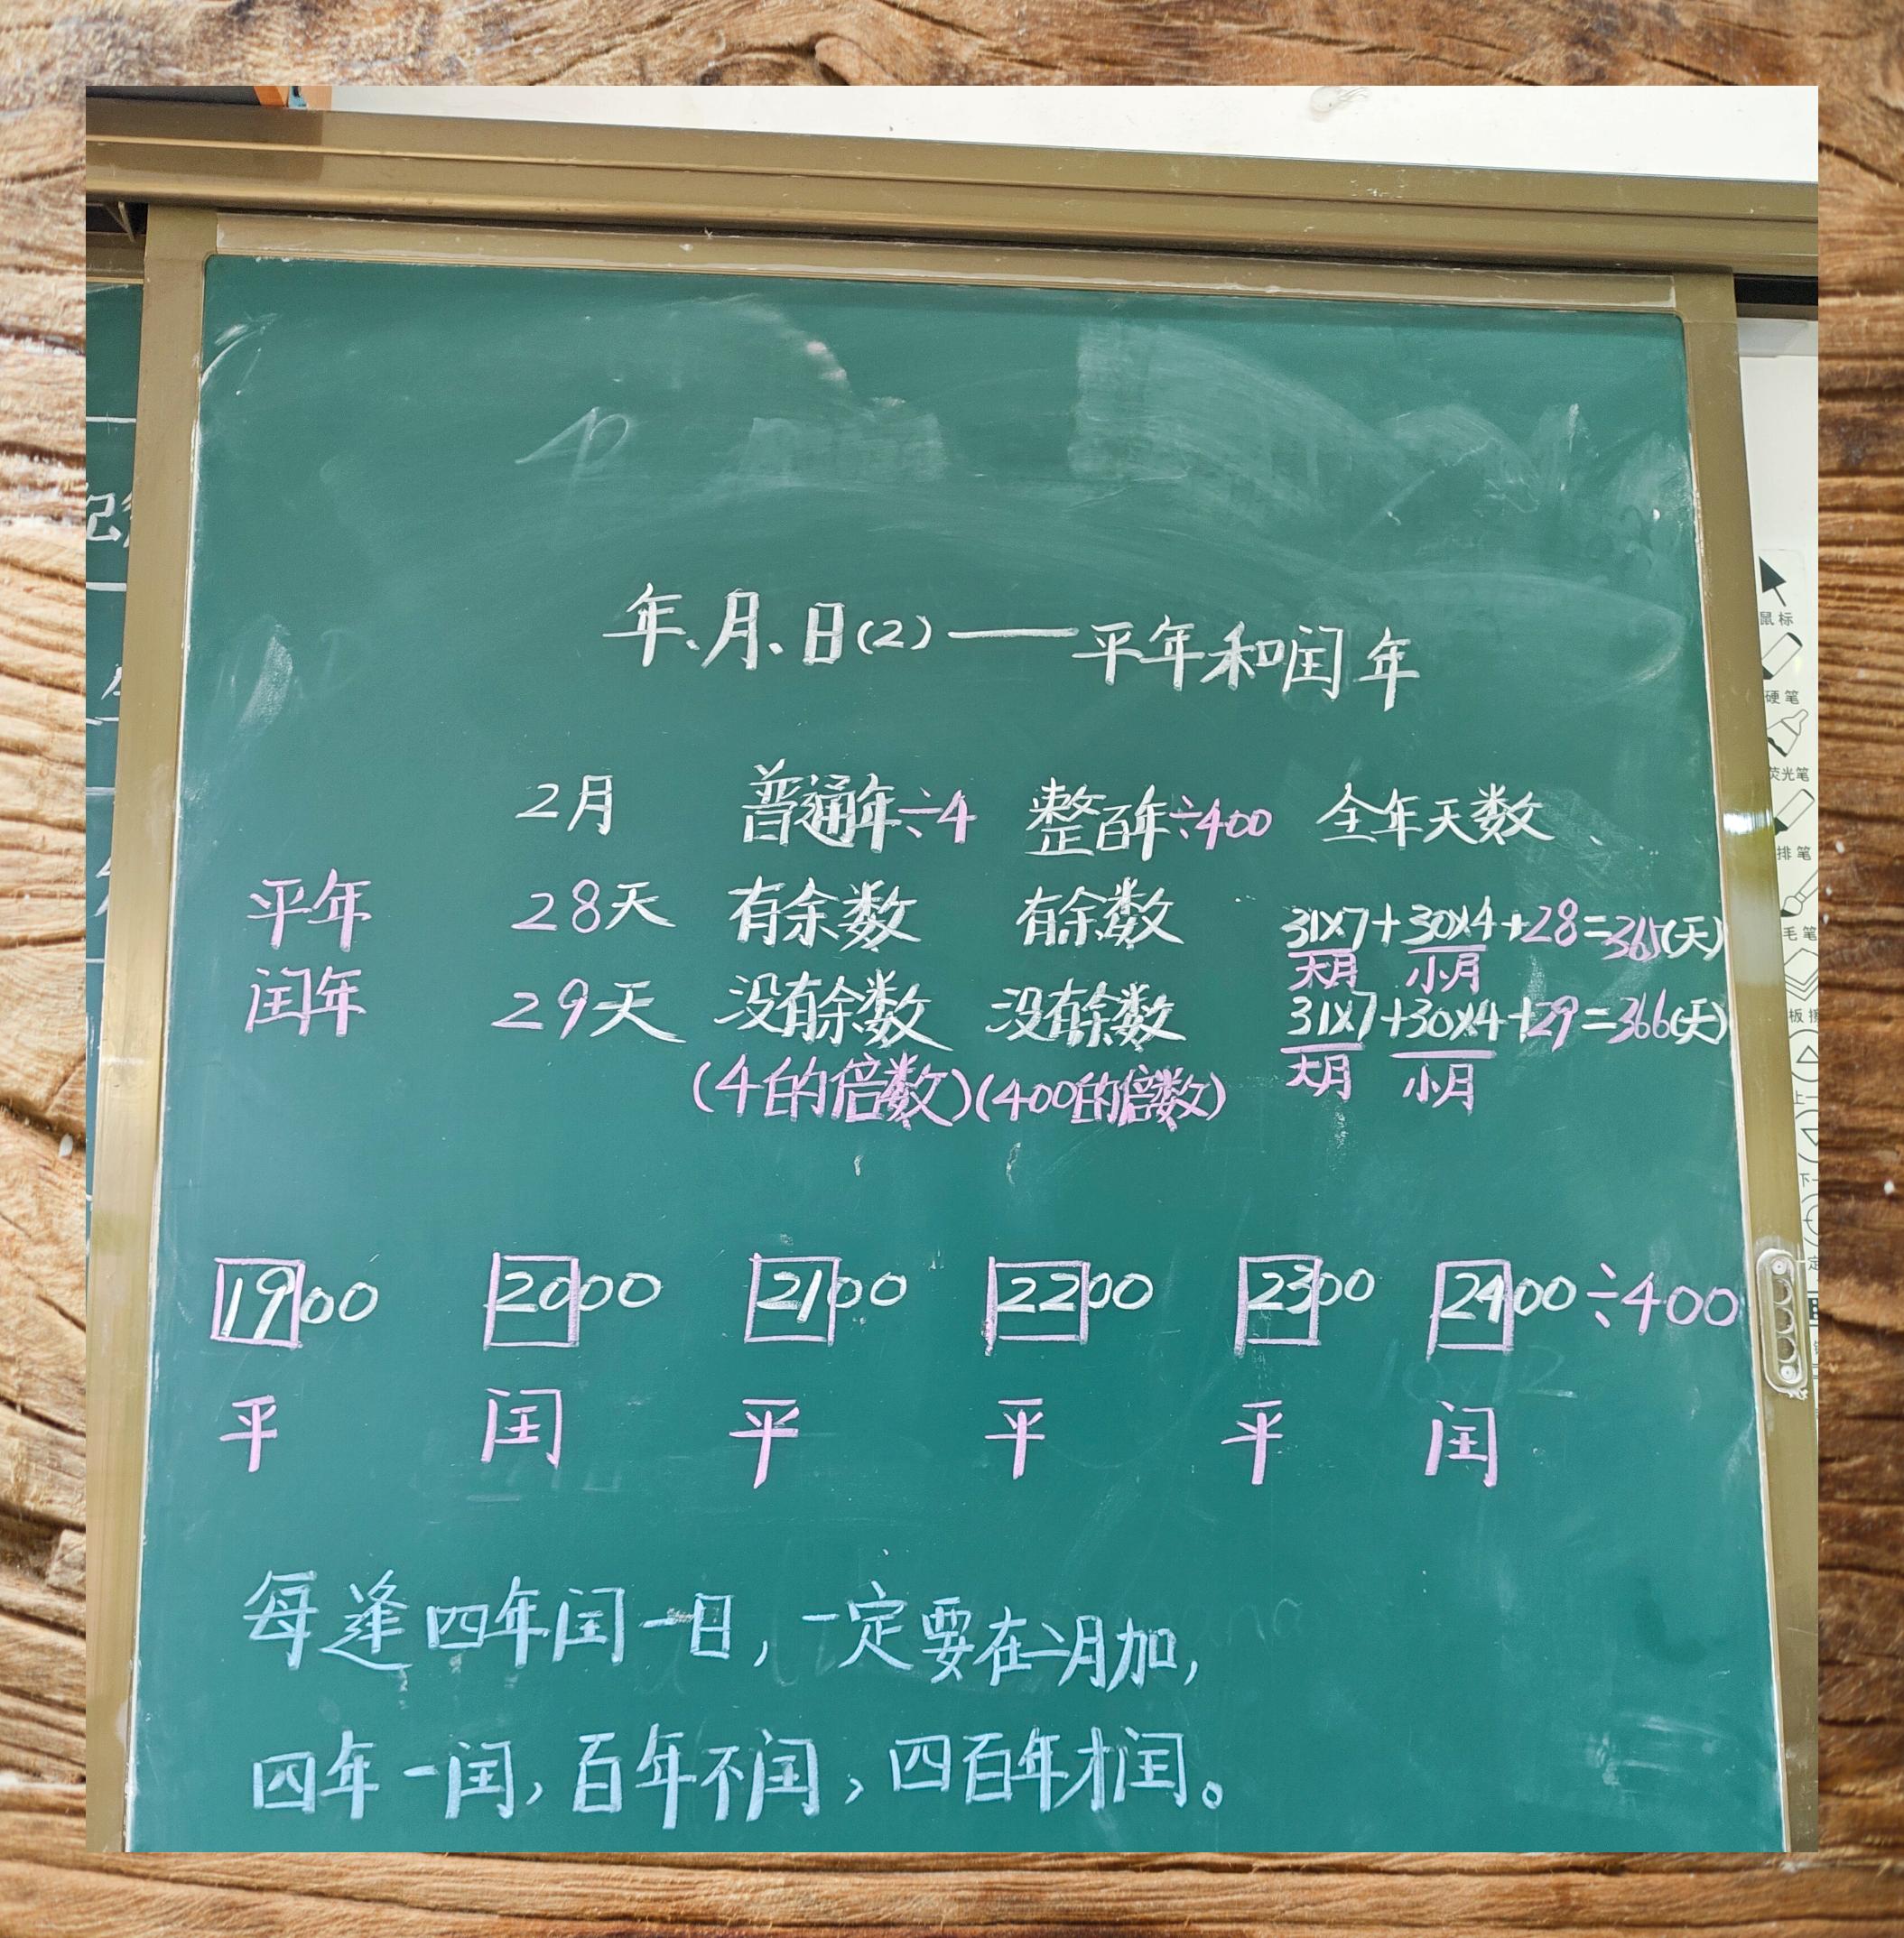 年、月、日(2)——平年和闰年
2月 普通年÷4 整百年÷400 全年天数
平年 28天 有余数 有余数 31×7+30×4+28=365(天)
大月 小月
闰年 29天 没有余数 没有余数 31×7+30×4+29=366(天)
(4的倍数)(400的倍数) 大月 小月
1900 2000 2100 2200 2300 2400÷400
平 闰 平 平 平 闰
每逢四年闰一日,一定要在二月加,
四年一闰,百年不闰,四百年才闰。
鼠标
硬笔
荧光笔
排笔
毛笔